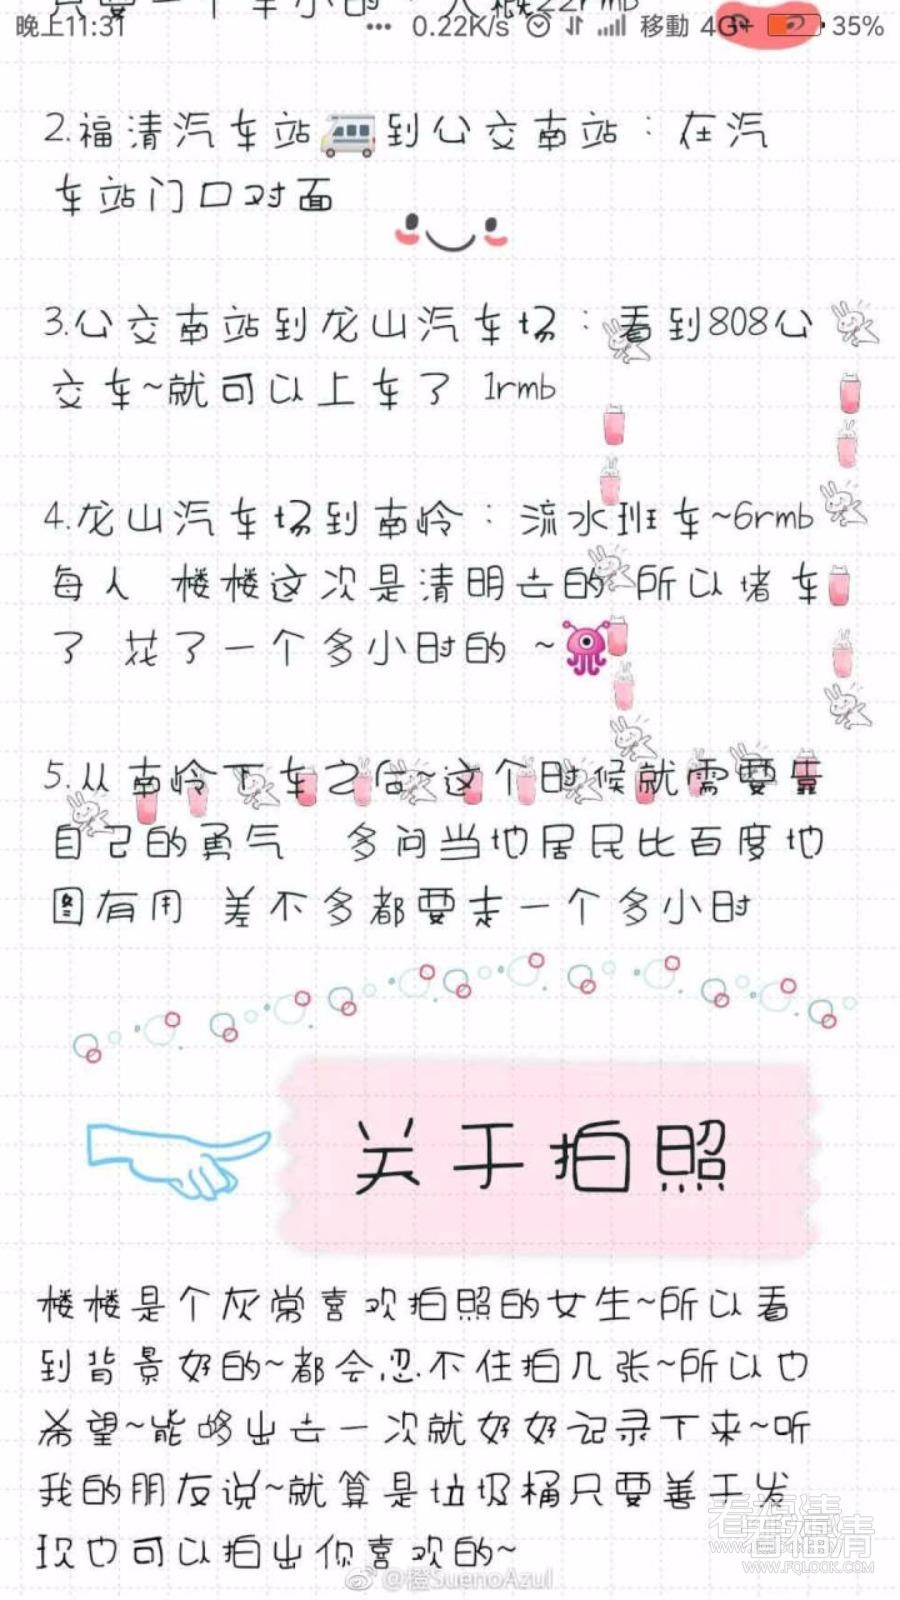 只要一个半小时：大概22rmb
晚上11:31 ... 0.22K/s 移動 4G+ 35%
2.福清汽车站到公交南站：在汽
车站门口对面
3.公交南站到龙山汽车场：看到808公
交车~就可以上车了 1rmb
4.龙山汽车场到南岭：流水班车~6rmb
每人 楼楼这次是清明去的 所以堵车
了 花了一个多小时的 ~
5.从南岭下车之后~这个时候就需要靠
自己的勇气 多问当地居民比百度地
图有用 差不多都要走一个多小时
关于拍照
楼楼是个灰常喜欢拍照的女生~所以看
到背景好的~都会忍不住拍几张~所以也
希望~能够出去一次就好好记录下来~听
我的朋友说~就算是垃圾桶只要善于发
现也可以拍出你喜欢的~
看福清
看福清
WWW.FQLOOK.COM
@橙SuenoAzul